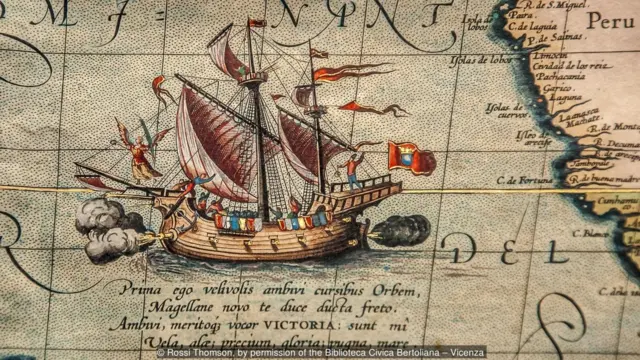 M J = N P N T
Isola de lobos
R. de S. Miguel.
Paira.
C. de laguia
P. de Salinas.
Peru
Isolas de lobos
Limocin
Cividad de los reis
Pachacania
Garico.
Laguna
Isolas de cuervos.
Isleo de arecife
R. de Monta
R. Decuma
Tambopalla
C. de Fortuna
R. de buena madre
C. Blanco
D E L
Prima ego velivolis ambivi cursibus Orbem,
Magellane novo te duce ducta freto.
Ambivi, meritoq; vocor VICTORIA: sunt mî
Vela, alæ; precium, gloria: pugna, mare.
© Rossi Thomson, by permission of the Biblioteca Civica Bertoliana – Vicenza